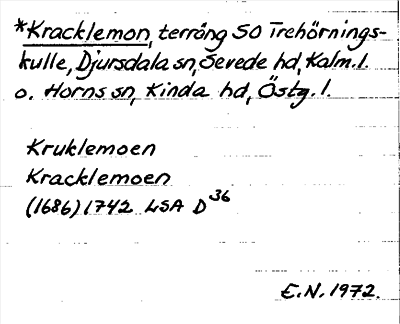 *Kracklemon, terräng SO Trehörnings-
kulle, Djursdala sn, Sevede hd, Kalm.l.
o. Horns sn, Kinda hd, Östg.l.
Kruklemoen
Kracklemoen
(1686) 1742 LSA D36
E.N. 1972.